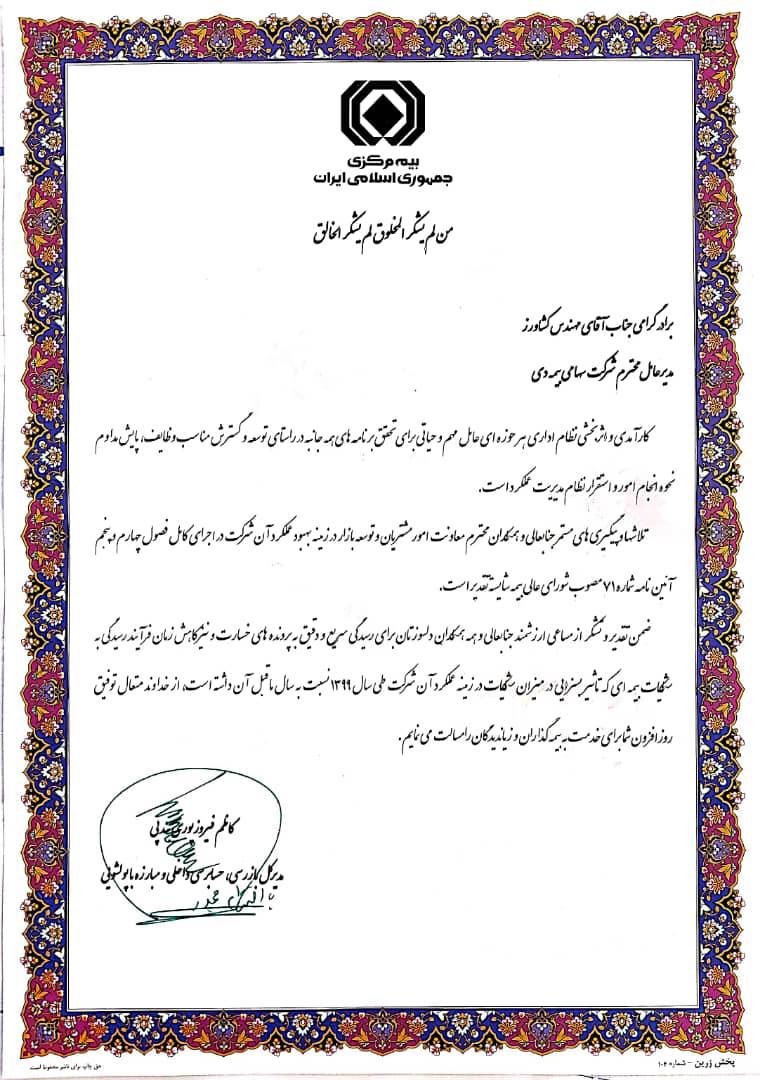 بیمه مرکزی
جمهوری اسلامی ایران
من لم یشکر المخلوق لم یشکر الخالق
برادر گرامی جناب آقای مهندس کشاورز
مدیرعامل محترم شرکت سهامی بیمه دی
کارآمدی و اثربخشی نظام اداری هر حوزه ای عامل مهم و حیاتی برای تحقق برنامه های همه جانبه در راستای توسعه و گسترش مناسب وظایف، پایش مداوم
نحوه انجام امور و استقرار نظام مدیریت عملکرد است.
تلاشها و پیگیری های مستمر جنابعالی و همکاران محترم معاونت امور مشتریان و توسعه بازار در زمینه بهبود عملکرد آن شرکت در اجرای کامل فصول چهارم و پنجم
آئین نامه شماره ۷۱ مصوب شورای عالی بیمه شایسته تقدیر است.
ضمن تقدیر و تشکر از مساعی ارزشمند جنابعالی و همه همکاران دلسوزتان برای رسیدگی سریع و دقیق به پرونده های خسارت و نیز کاهش زمان فرآیند رسیدگی به
شکایات بیمه ای که تاثیر بسزایی در میزان شکایات در زمینه عملکرد آن شرکت طی سال ۱۳۹۹ نسبت به سال ماقبل آن داشته است، از خداوند متعال توفیق
روز افزون شما برای خدمت به بیمه گذاران و زیاندیدگان را مسالت می نمایم.
کاظم فیروزپوری
مدیرکل بازرسی، حسابرسی داخلی و مبارزه با پولشویی
با احترام مجدد
پخش زرین - شماره ۱۰۴
حق چاپ برای ناشر محفوظ است